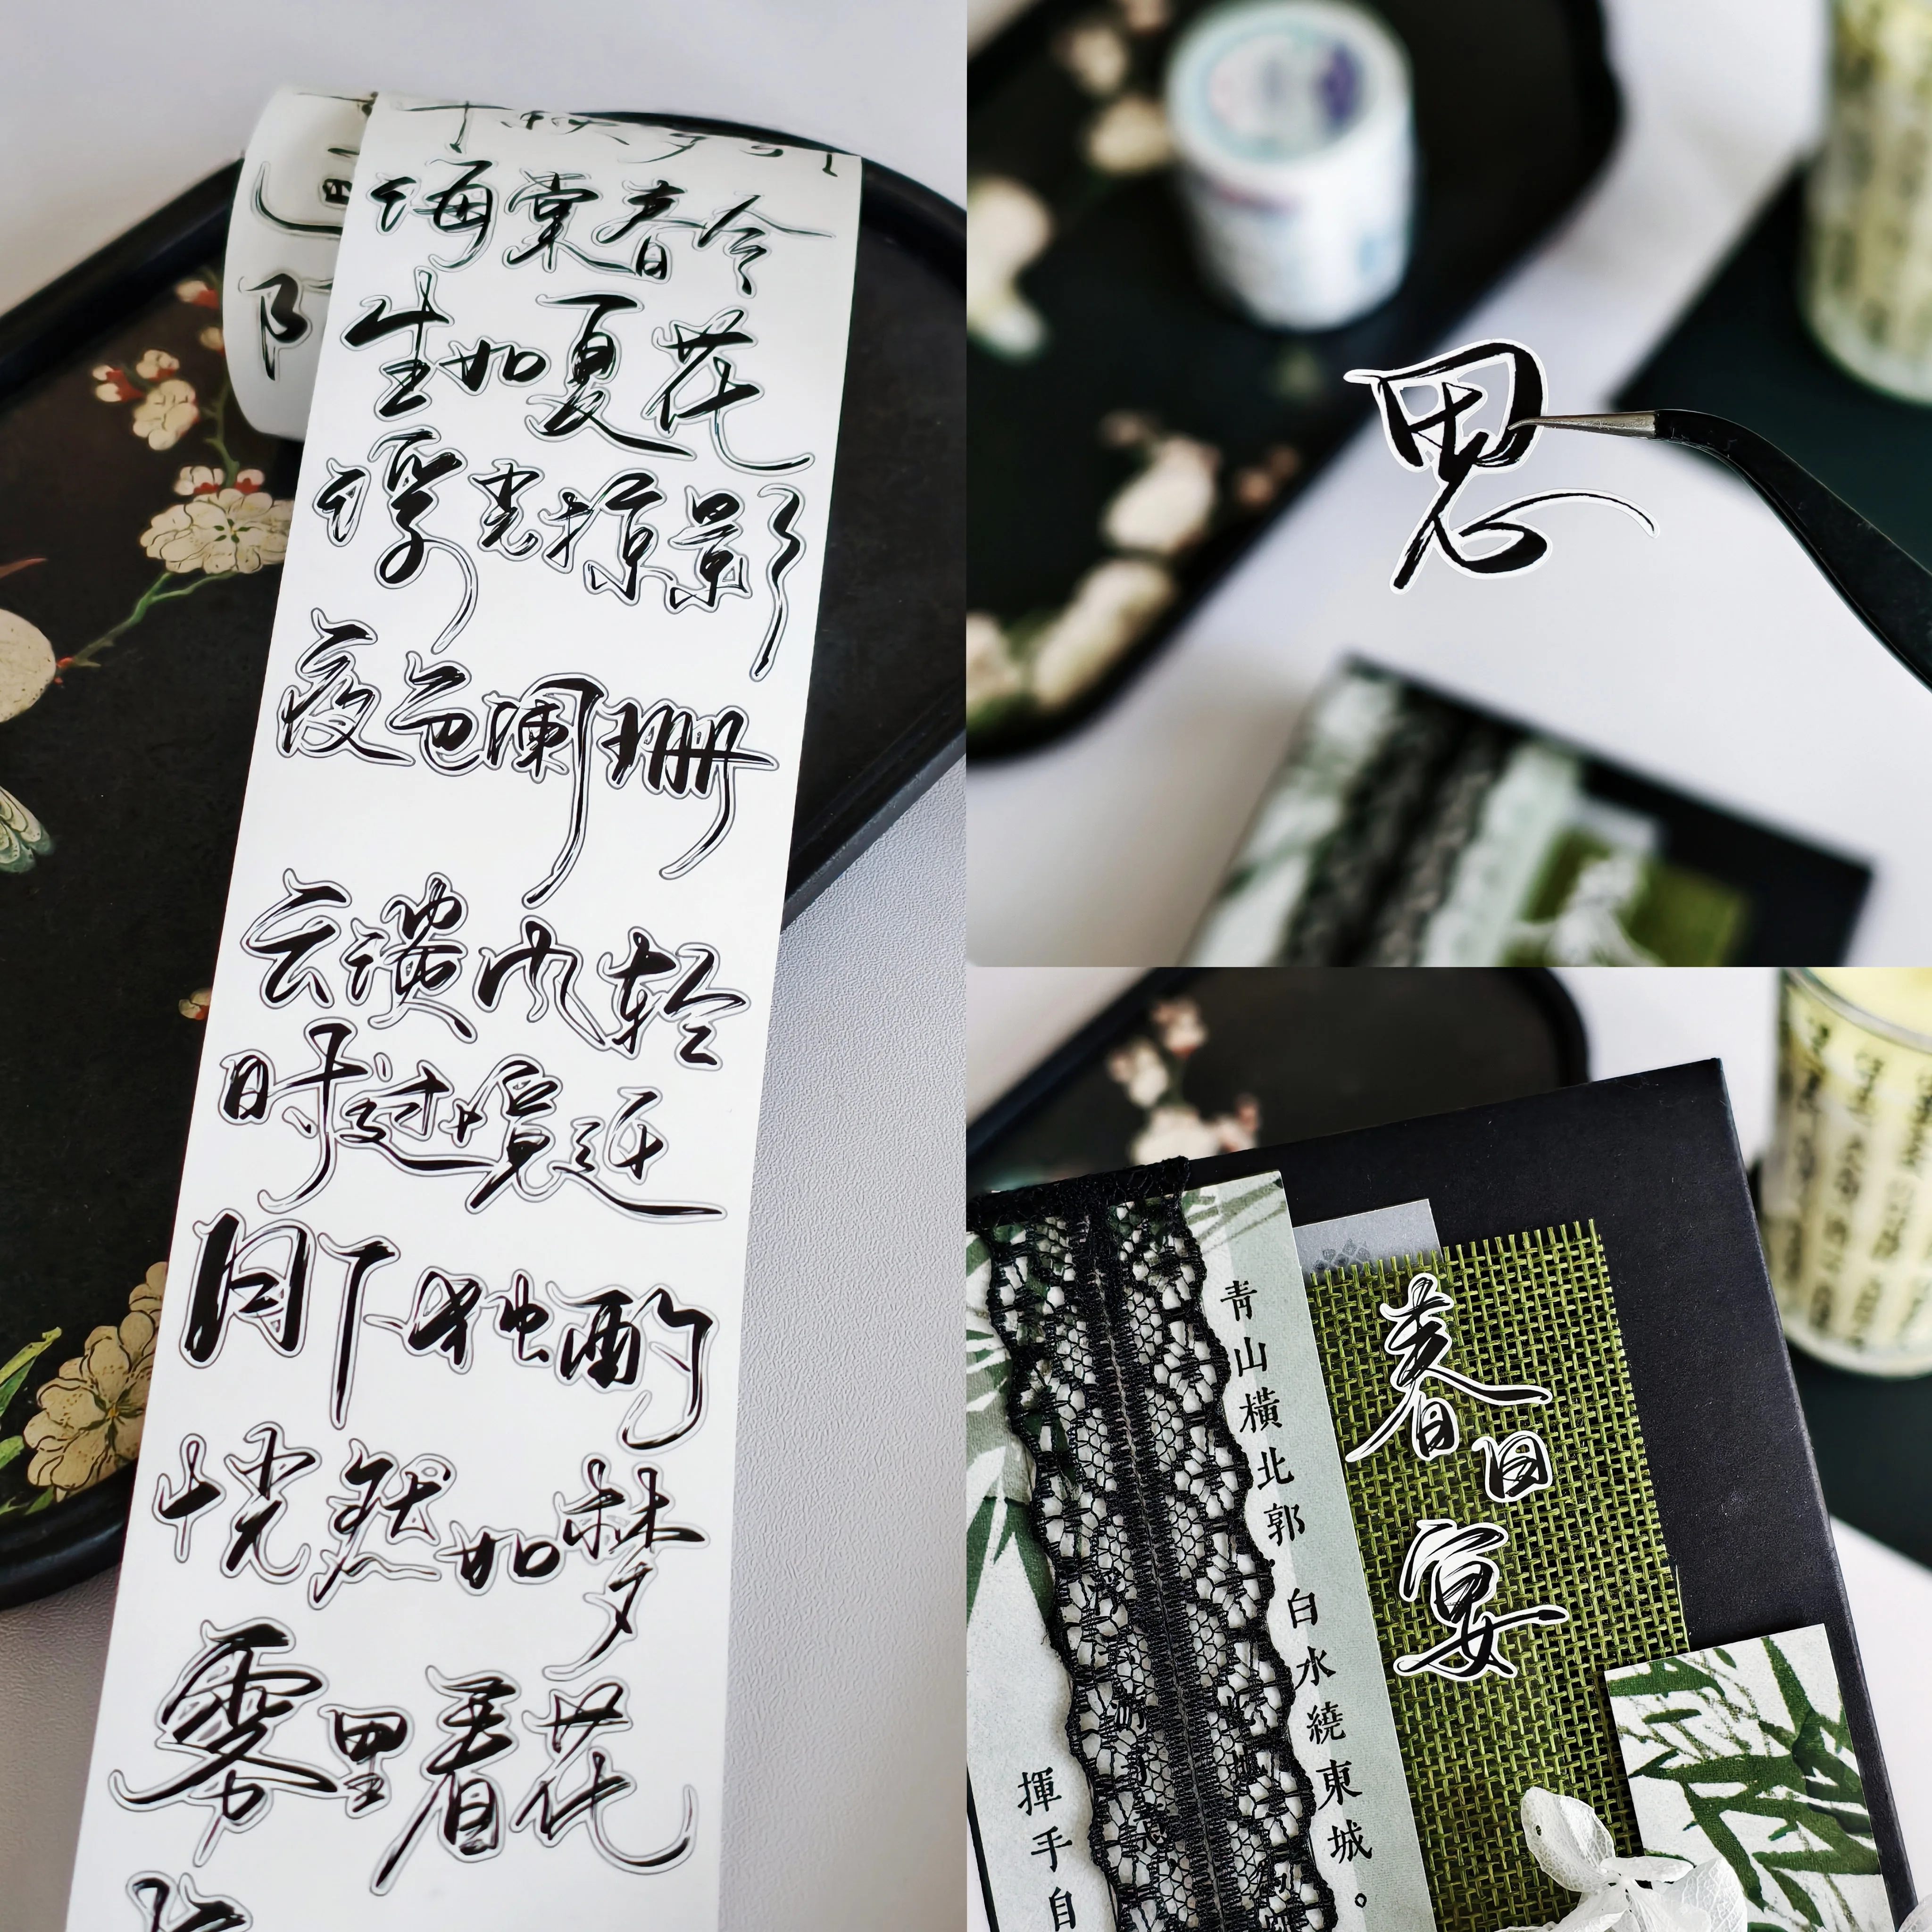 海棠春令
生如夏花
浮光掠影
夜色阑珊
云淡风轻
时过境迁
月下独酌
恍然如梦
雾里看花
思
青山橫北郭 白水繞東城。
揮手自
春日宴